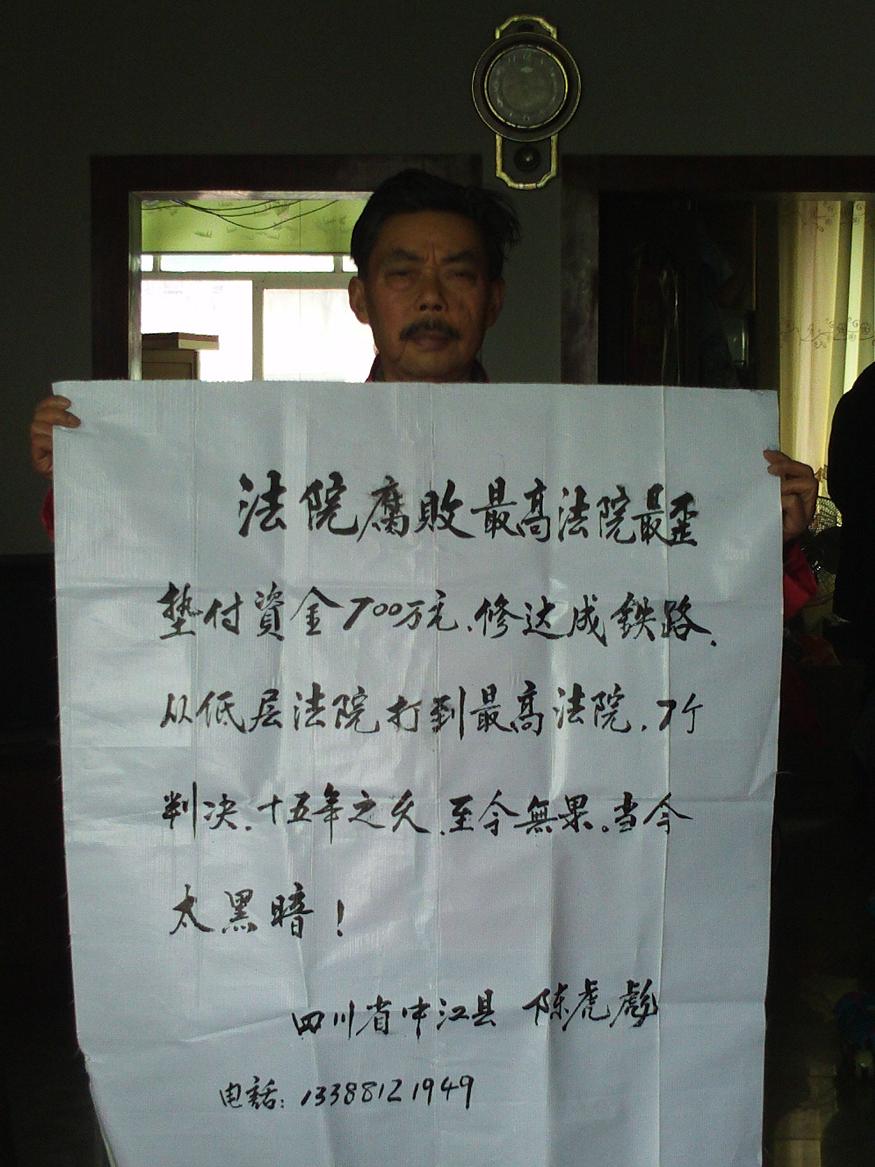 法院腐敗最高法院最歪
垫付資金700万元、修达成鉄路、
从低层法院打到最高法院、7个
判决、十五年之久、至今無果。当今
太黑暗！
四川省中江县 陈虎彪
电話：13388121949